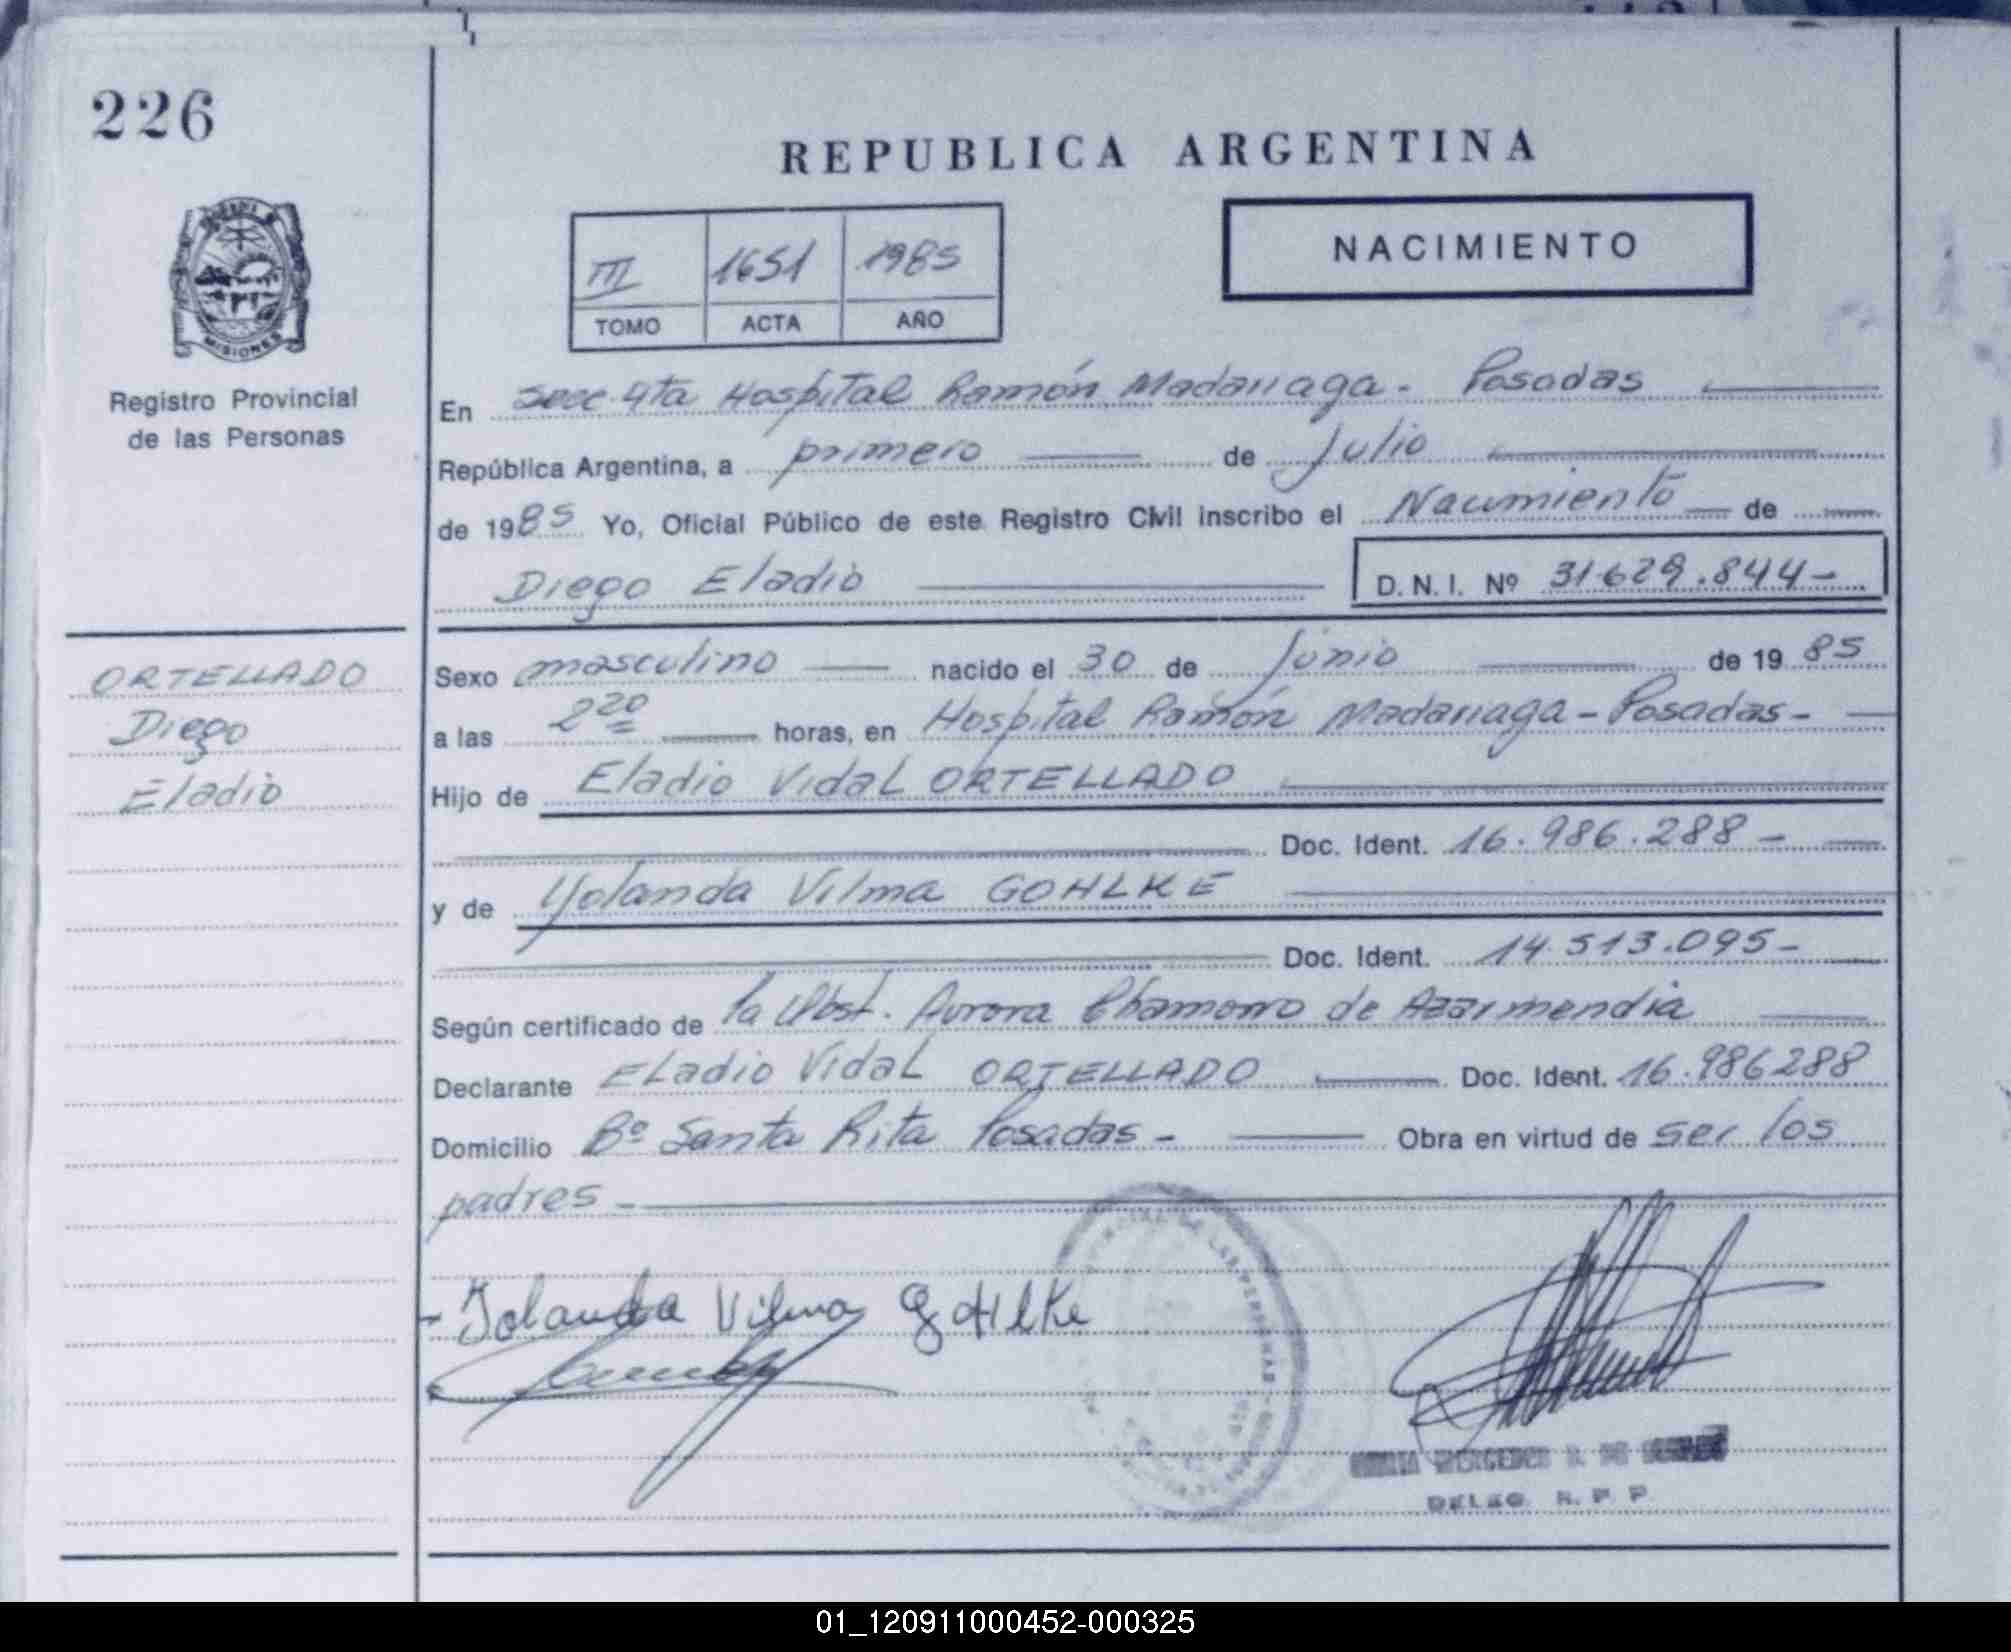 226
REPUBLICA ARGENTINA
III 1651 1985
TOMO ACTA AÑO
NACIMIENTO
MISIONES
Registro Provincial
de las Personas
En Secc. 4ta Hospital Ramón Madariaga - Posadas
República Argentina, a primero de Julio
de 1985 Yo, Oficial Público de este Registro Civil inscribo el Nacimiento de
Diego Eladio D.N.I. Nº 31.629.844-
ORTELLADO
Diego
Eladio
Sexo masculino nacido el 30 de Junio de 1985
a las 2 20 horas, en Hospital Ramón Madariaga - Posadas -
Hijo de Eladio Vidal ORTELLADO
Doc. Ident. 16.986.288 -
y de Yolanda Vilma GOHLKE
Doc. Ident. 14.513.095 -
Según certificado de la Obst. Aurora Chamorro de Azarmendia
Declarante Eladio Vidal ORTELLADO Doc. Ident. 16.986288
Domicilio Bº Santa Rita Posadas - Obra en virtud de ser los
padres -
Yolanda Vilma Gohlke
MERCEDES
DELEG. R. P. P.
01_120911000452-000325